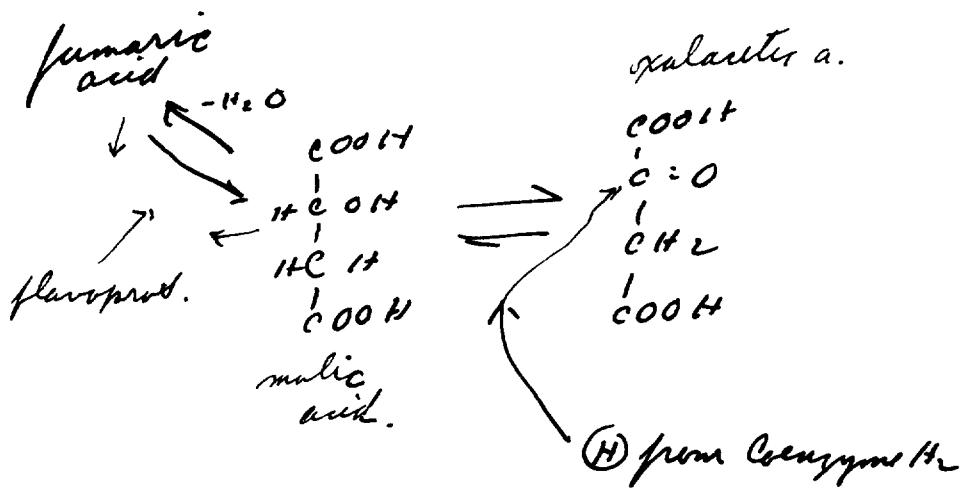 fumaric
acid
- H2O
flavoprot.
COOH
H C OH
H C H
COOH
malic
acid.
oxalacetic a.
COOH
C = O
CH2
COOH
H from Coenzyme H2